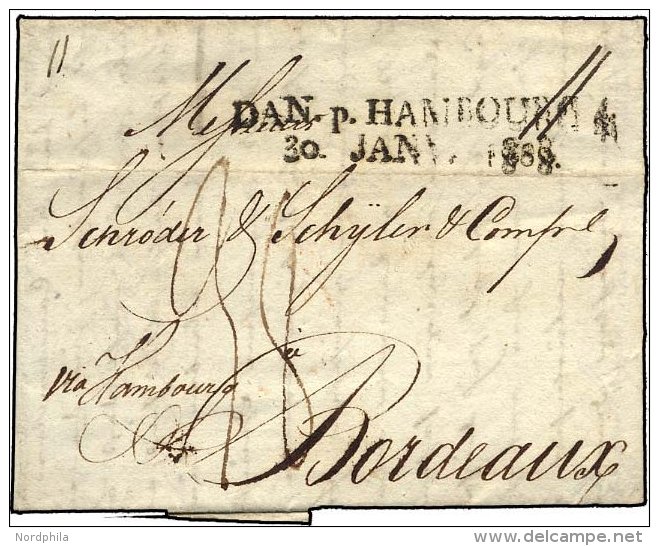 Messieurs
DAN. p. HAMBOURG 4
30. JANV. 1808.
Schröder & Schÿler & Comp.e
via Hambourg
à
Bordeaux
Nordphila
delcampe.net